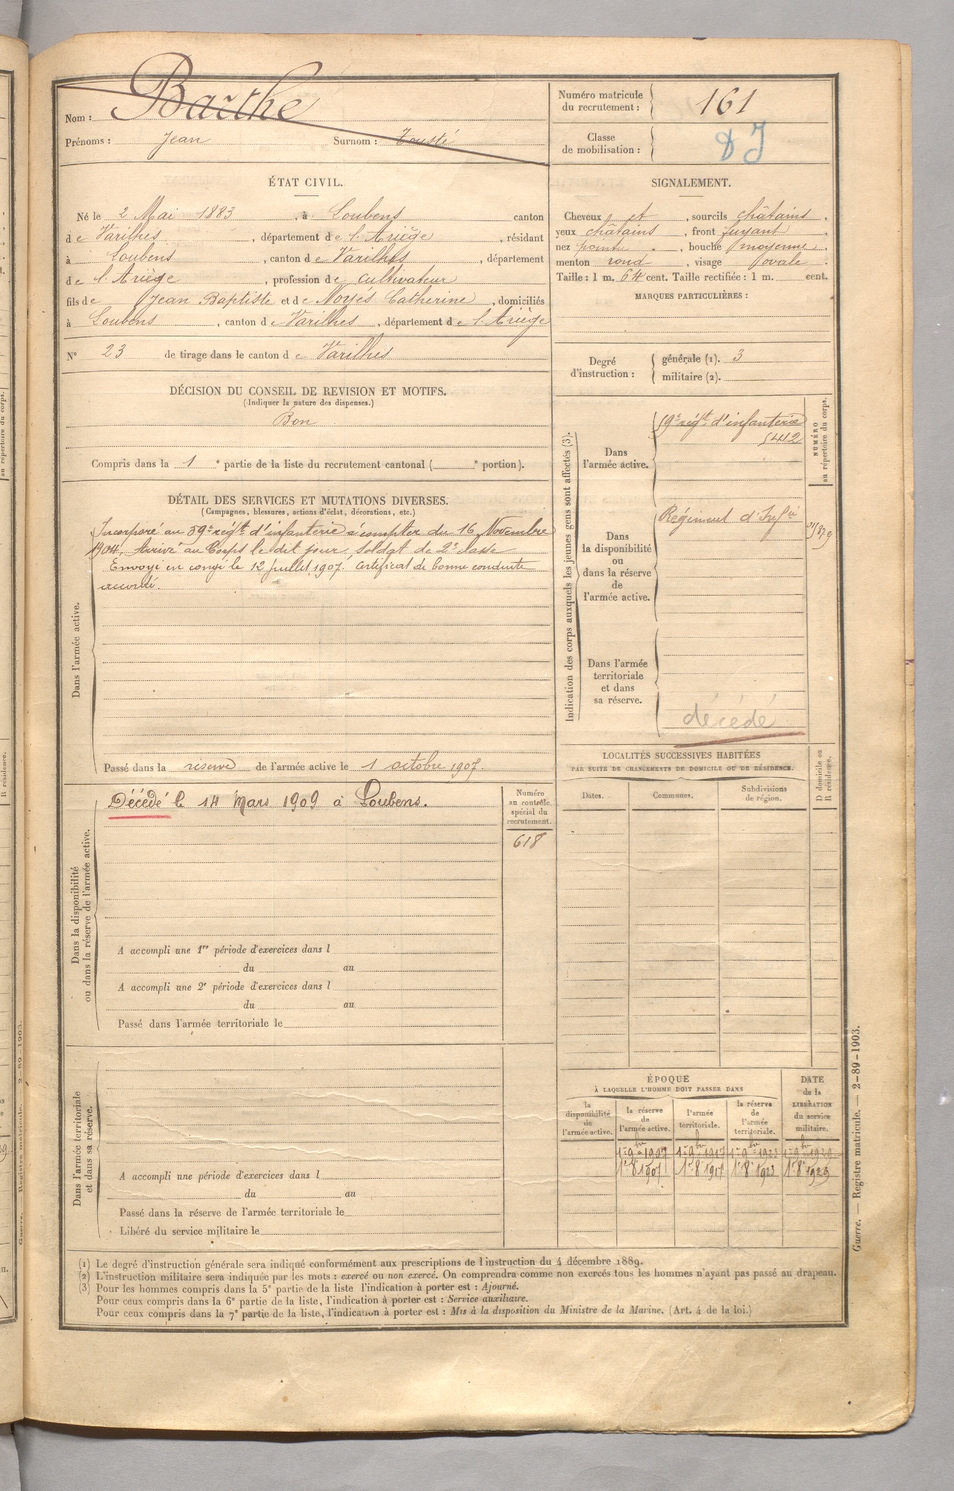 Nom : Barthe
Prénoms : Jean Surnom :
Numéro matricule du recrutement : 161
Classe de mobilisation :
ÉTAT CIVIL.
Né le 2 Mai 1883, à Loubens canton
de Varilhes, département de l'Ariège, résidant
à Loubens, canton de Varilhes, département
de l'Ariège, profession de cultivateur
fils de Jean Baptiste et de Noyès Catherine, domiciliés
à Loubens, canton de Varilhes, département de l'Ariège
N° 23 de tirage dans le canton de Varilhes
DÉCISION DU CONSEIL DE REVISION ET MOTIFS.
(Indiquer la nature des dispenses.)
Bon
Compris dans la 1e partie de la liste du recrutement cantonal ( e portion).
DÉTAIL DES SERVICES ET MUTATIONS DIVERSES.
(Campagnes, blessures, actions d'éclat, décorations, etc.)
Dans l'armée active.
Incorporé au 59e régt d'infanterie à compter du 16 Novembre
1904. Arrivé au Corps le dit jour, Soldat de 2e classe
Envoyé en congé le 12 juillet 1907. Certificat de bonne conduite
accordé.
Passé dans la réserve de l'armée active le 1 octobre 1907.
Dans la disponibilité
ou dans la réserve de l'armée active.
Décédé le 14 Mars 1909 à Loubens.
Numéro
au contrôle
spécial du
recrutement.
618
A accompli une 1re période d'exercices dans l
du au
A accompli une 2e période d'exercices dans l
du au
Passé dans l'armée territoriale le
Dans l'armée territoriale
et dans sa réserve.
A accompli une période d'exercices dans l
du au
Passé dans la réserve de l'armée territoriale le
Libéré du service militaire le
SIGNALEMENT.
Cheveux et, sourcils châtains.
yeux châtains, front fuyant
nez pointu, bouche moyenne
menton rond, visage ovale
Taille : 1 m. 64 cent. Taille rectifiée : 1 m. cent.
MARQUES PARTICULIÈRES :
Degré d'instruction :
générale (1). 3
militaire (2).
Indication des corps auxquels les jeunes gens sont affectés (3).
NUMÉRO
au répertoire du corps.
Dans
l'armée active.
59e régt d'infanterie
5412
Dans
la disponibilité
ou
dans la réserve
de
l'armée active.
Régiment d'Infie
Dans l'armée
territoriale
et dans
sa réserve.
décédé
LOCALITÉS SUCCESSIVES HABITÉES
PAR SUITE DE CHANGEMENTS DE DOMICILE OU DE RÉSIDENCE.
D domicile ou
R résidence.
Dates. Communes. Subdivisions
de région.
ÉPOQUE
À LAQUELLE L'HOMME DOIT PASSER DANS
DATE
de la
LIBÉRATION
du service
militaire.
la
disponibilité
de
l'armée active.
la réserve
de
l'armée active.
l'armée
territoriale.
la réserve
de
l'armée
territoriale.
Guerre. — Registre matricule. — 2-89-1903.
(1) Le degré d'instruction générale sera indiqué conformément aux prescriptions de l'instruction du 4 décembre 1889.
(2) L'instruction militaire sera indiquée par les mots : exercé ou non exercé. On comprendra comme non exercés tous les hommes n'ayant pas passé au drapeau.
(3) Pour les hommes compris dans la 5e partie de la liste l'indication à porter est : Ajourné.
Pour ceux compris dans la 6e partie de la liste, l'indication à porter est : Service auxiliaire.
Pour ceux compris dans la 7e partie de la liste, l'indication à porter est : Mis à la disposition du Ministre de la Marine. (Art. 4 de la loi.)